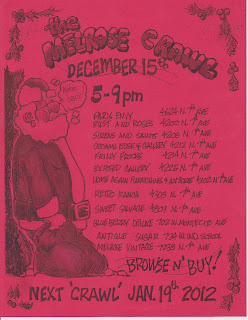 the
MELROSE CRAWL
DECEMBER 15th
5-9pm
4624 N. 7th AVE
RUST AND ROSES 4200 N. 7th AVE
SIRENS AND SAINTS N. 7th AVE
& GALLERY 4212 N. 7th AVE
FRILLY FROCKS N. 7th AVE
GALLERY 4225 N. 7th AVE
HOME AGAIN & ANTIQUES N. 7th AVE
RETRO RANCH 4303 N. 7th AVE
SWEET SALVAGE N. 7th AVE
BLUEBERRY DELUXE 702 W. MONTECITO AVE
ANTIQUE SUGAR 734 W. INDIAN SCHOOL
MELROSE VINTAGE 4238 N. 7th AVE
BROWSE N' BUY!
NEXT 'CRAWL' JAN. 19th 2012